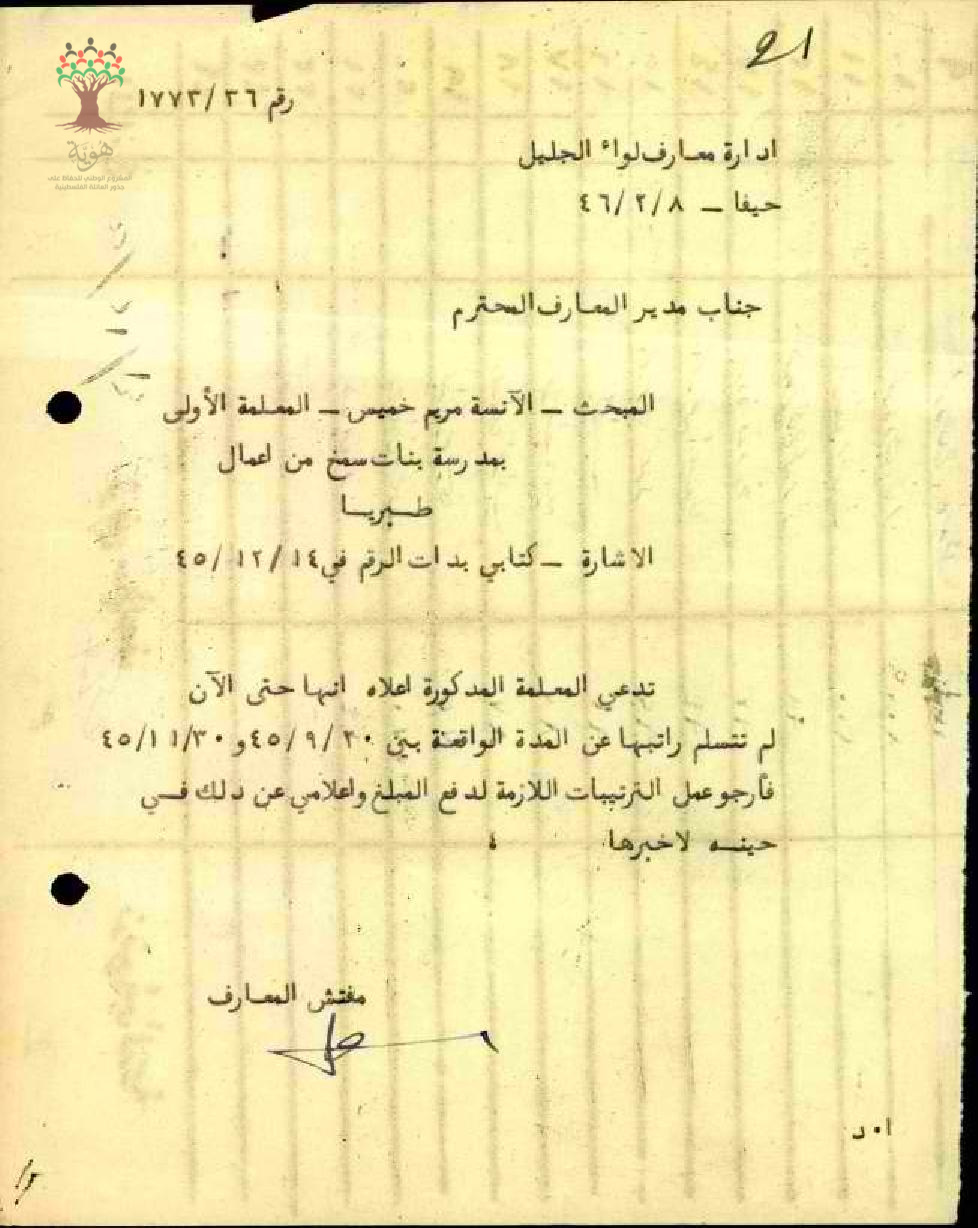 21
هوية
المشروع الوطني للحفاظ على
جذور العائلة الفلسطينية
رقم ٢٦/ ١٧٧٣
ادارة معارف لواء الجليل
حيفا – ٤٦/٢/٨
جناب مدير المعارف المحترم
المبحث – الآنسة مريم خميس – المعلمة الأولى
بمدرسة بنات سمخ من اعمال
طبريا
الاشارة – كتابي بدات الرقم في ١٤/ ١٢/ ٤٥
تدعي المعلمة المدكورة اعلاه انها حتى الآن
لم تتسلم راتبها عن المدة الواقعة بين ٤٥/٩/٢٠ و ٤٥/١١/٣٠
فأرجو عمل الترتيبات اللازمة لدفع المبلغ واعلامي عن دلك في
حينه لاخبرها ،
مفتش المعارف
ا٠د